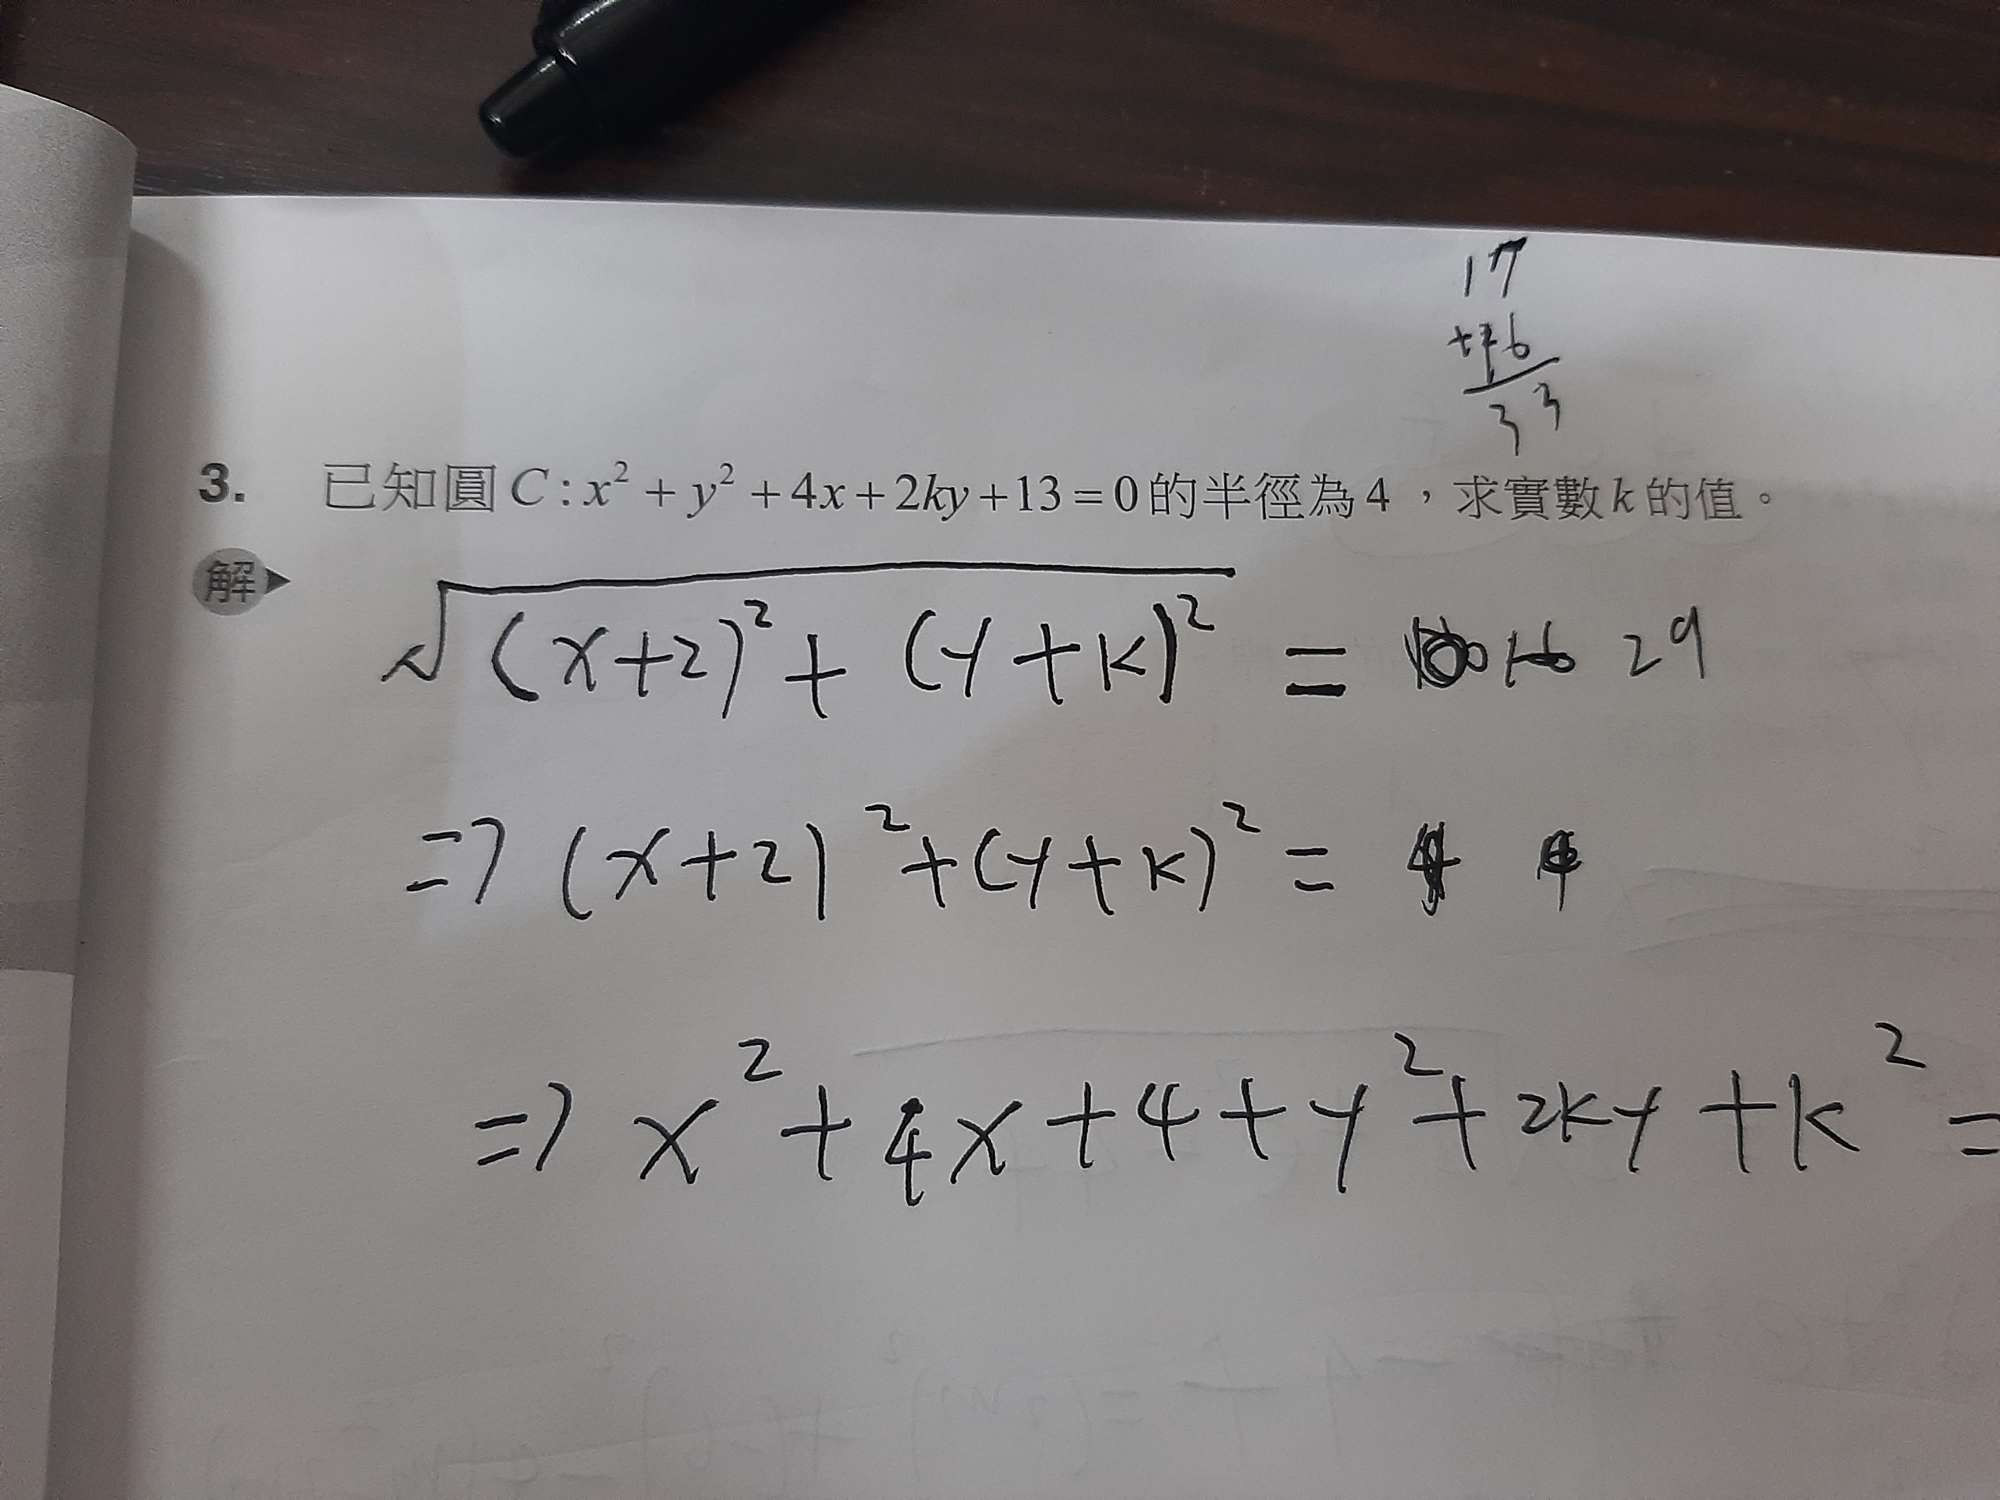 17
+16
33
3. 已知圓 C : x² + y² + 4x + 2ky + 13 = 0 的半徑為 4 ，求實數 k 的值。
解
√(x+2)² + (y+k)² = 16 29
=> (x+2)² + (y+k)² = 4 4
=> x² + 4x + 4 + y² + 2ky + k² =